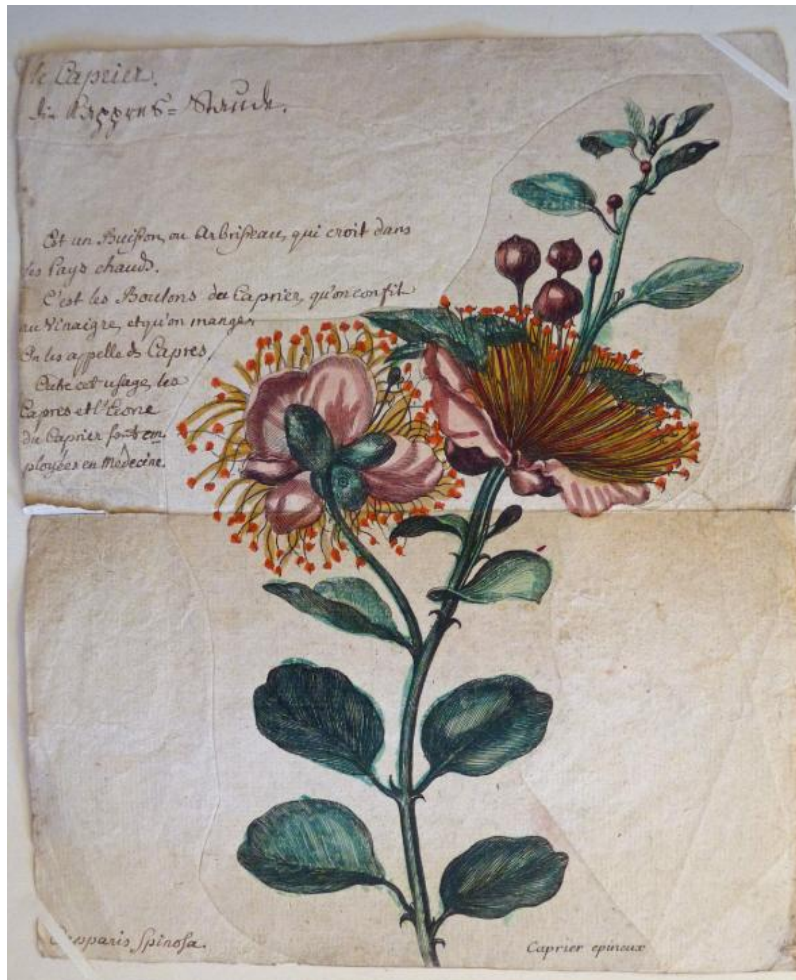 le Caprier.
die Kappres=Staude.
Est un Buisson, ou Arbrisseau, qui croit dans
les Pays chauds.
C'est les Boutons du Caprier, qu'on confit
au Vinaigre, et qu'on mange,
On les appelle des Capres,
Outre cet usage, les
Capres et l'Ecorce
du Caprier sont em
ployées en Medecine.
Capparis Spinosa.
Caprier epineux